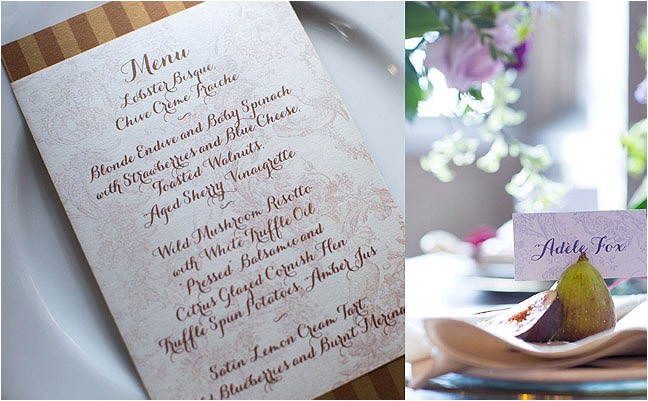 Menu
Lobster Bisque,
Chive Crème Fraiche
Blonde Endive and Baby Spinach
with Strawberries and Blue Cheese,
Toasted Walnuts,
Aged Sherry Vinaigrette
Wild Mushroom Risotto
with White Truffle Oil
"Pressed" Balsamic and
Citrus Glazed Cornish Hen
Truffle Spun Potatoes, Amber Jus
Satin Lemon Cream Tart
Blueberries and Burnt
Adèle Fox